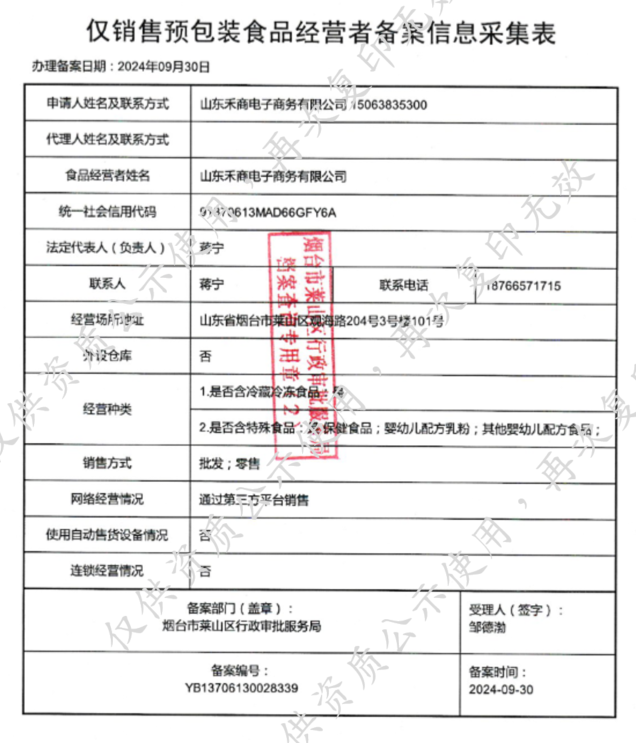 仅销售预包装食品经营者备案信息采集表
办理备案日期：2024年09月30日
申请人姓名及联系方式 山东禾商电子商务有限公司 15063835300
代理人姓名及联系方式
食品经营者姓名 山东禾商电子商务有限公司
统一社会信用代码 91370613MAD66GFY6A
法定代表人（负责人） 蒋宁
联系人 蒋宁 联系电话 18766571715
经营场所地址 山东省烟台市莱山区观海路204号3号楼101号
外设仓库 否
经营种类 1.是否含冷藏冷冻食品：
2.是否含特殊食品： 保健食品；婴幼儿配方乳粉；其他婴幼儿配方食品；
销售方式 批发；零售
网络经营情况 通过第三方平台销售
使用自动售货设备情况 否
连锁经营情况 否
备案部门（盖章）：
烟台市莱山区行政审批服务局
受理人（签字）：
邹德渤
备案编号：
YB13706130028339
备案时间：
2024-09-30
烟台市莱山区行政审批服务局
档案查询专用章
仅供资质公示使用，再次复印无效
仅供资质公示使用，再次复印无效
仅供资质公示使用，再次复印无效